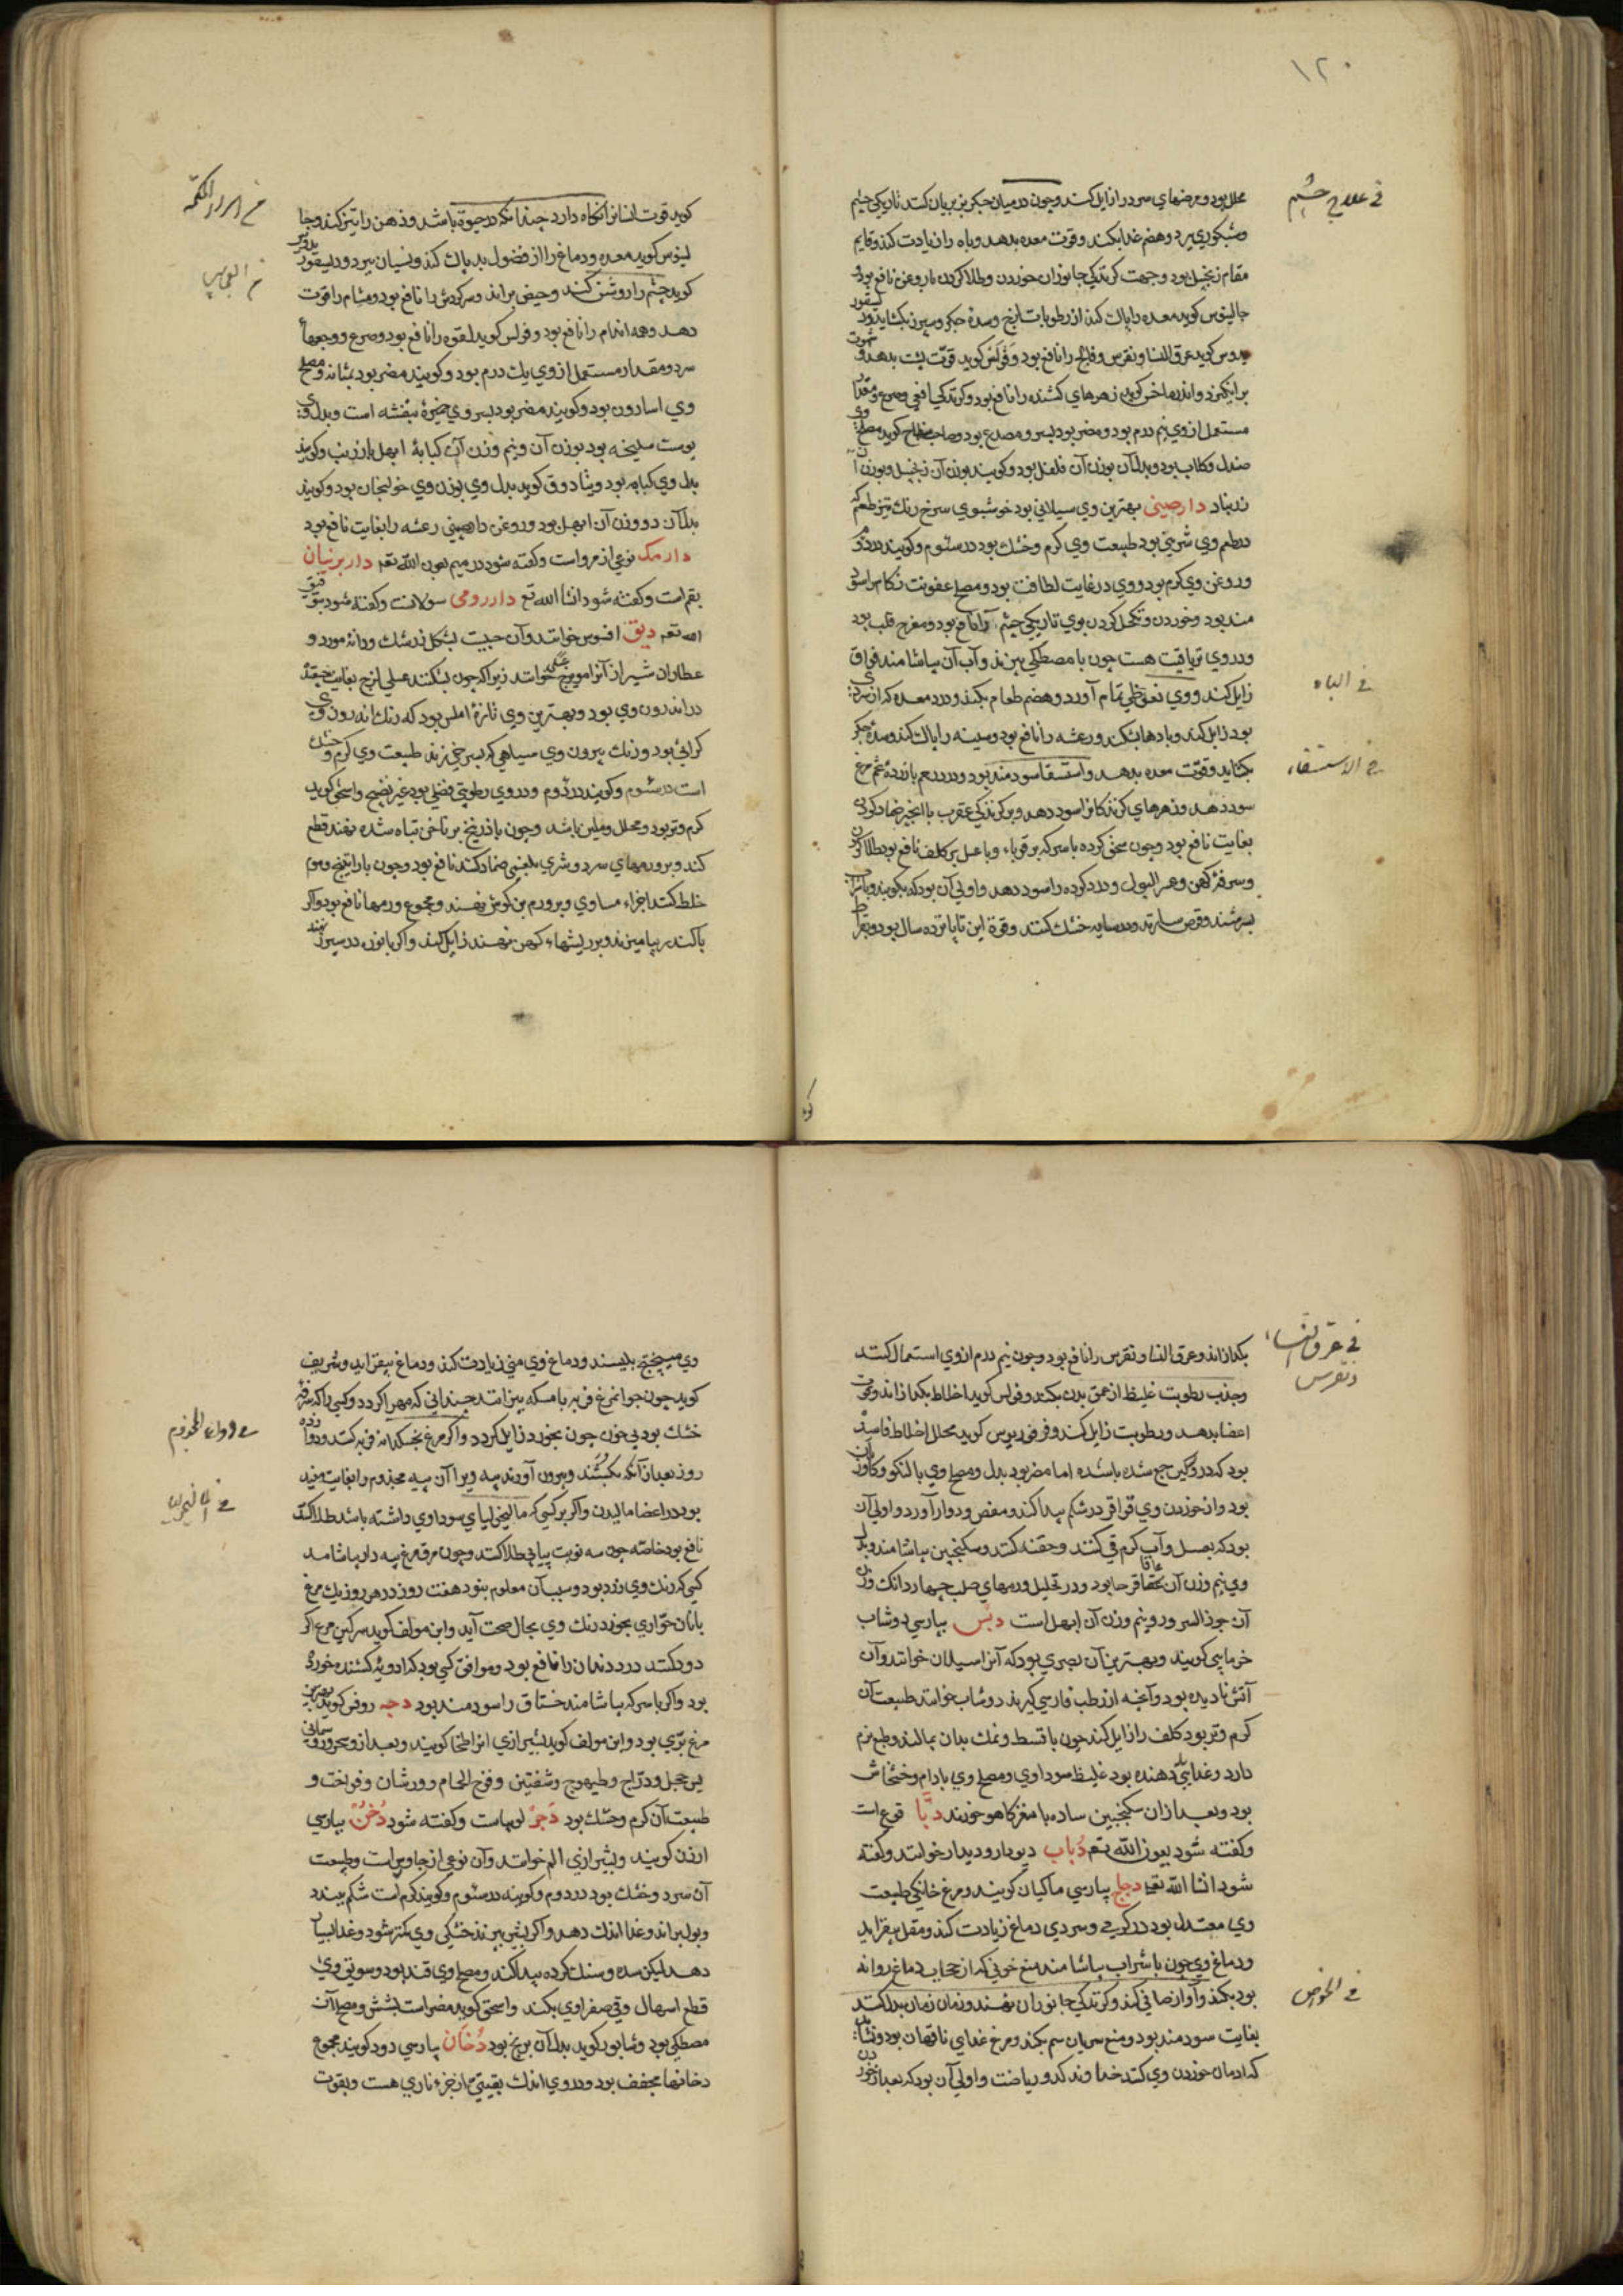 ۱۲۰
في علاج چشم
محلل بود و مرضهای سرد را زایل کند و چون در میان جگر بز بریان کنند تاریکی چشم
و شبکوری ببرد و هضم غذا بکند و قوت معده بدهد و باه را زیادت کند و قایم
مقام زنجبیل بود و جهت کزندکی جانوران خوردن و طلا کردن با روغن نافع بود
جالینوس کوید معده را پاک کند از رطوبات لزج و سده جکر و سپرز بکشاید و دیسقور
یدوس کوید عرق النسا و نقرس و فالج را نافع بود و فولس کوید قوت پشت بدهد و شهوت
برانکیزد و اندروماخس کوید زهرهای کشنده را نافع بود و کزندکی افعی و صرع و مقدار
مستعمل از وی نیم درم بود و مضر بود بسر و مصدع بود و صاحب منهاج کوید مصلح وی
صندل و کلاب بود و بدل آن بوزن آن فلفل بود و کویند بوزن آن زنجبیل و بوزن آن
زرنباد دارصینی بهترین وی سیلانی بود خوشبوی سرخ رنک تیز طعم که
در طعم وی شیرینی بود طبیعت وی کرم و خشک بود در سئوم و کویند در دوم
و روغن وی کرم بود و وی در غایت لطافت بود و مصلح عفونت زکام را سود
مند بود و خوردن و تکحل کردن بوی تاریکی چشم را نافع بود و مفرح قلب بود
و در وی تریاقیت هست چون با مصطکی بپزند و آب آن بیاشامند فواق
في الباه
زایل کند و وی نعوظی تمام آورد و هضم طعام بکند و درد معده که از سردی
بود زایل کند و بادها بشکند و رعشه را نافع بود و سینه را پاک کند و سده جکر
في الاستسقاء
بکشاید و قوت معده بدهد و استسقا سودمند بود و درد رحم با زرده تخم مرغ
سود دهد و زهرهای کزندکانرا سود دهد و بر کزندکی عقرب با انجیر ضماد کردن
بغایت نافع بود و چون سحق کرده با سرکه بر قوباء و با عسل بر کلف نافع بود طلا کردن
و سرفه کهن و عسر البول و درد کرده را سود دهد و اولی آن بود که بکویند و با شراب
بسرشند و قرص سازند و در سایه خشک کنند و قوة این تا پانزده سال بود و بقراط
کوید
في امراء اللقمه
کوید قوت انسان را نکاه دارد چندانکه در حیوة باشد و ذهن را تیز کند و جا
لینوس کوید معده و دماغ را از فضول بد پاک کند و نسیان ببرد و دیسقوریدوس
کوید چشم را روشن کند و حیض براند و سرکردش را نافع بود و مشام را قوت
دهد و همه اندام را نافع بود و فولس کوید لقوه را نافع بود و صرع و وجعها
سرد و مقدار مستعمل از وی یک درم بود و کویند مضر بود بمثانه و مصلح
وی اسارون بود و کویند مضر بود بسر وی خمیره بنفشه است و بدل وی
پوست سلیخه بود بوزن آن و نیم وزن آن کبابه ابهل و کویند
بدل وی کبابه بود و بثادوق کوید بدل وی بوزن وی خولنجان بود و کویند
بدل آن دو وزن آن ابهل بود و روغن دارصینی رعشه را بغایت نافع بود
دارمک نوعی از مرو است و کفته شود در میم بعون الله تعه داربرنیان
بقم است و کفته شود انشا الله تع دار رومی
الله تعه دبق افسوس خوانند و آن حبیست بشکل زرشک و دانه مورد و
عطاران شیراز آنرا مویزج عسلی خوانند زیرا که چون بشکنند عسلی لزج بغایت چفته
در اندرون وی بود و بهترین وی تازه املس بود که رنک اندرون وی
کراثی بود و رنک بیرون وی سیاهی که بسرخی زند طبیعت وی کرم و خشک
است در سئوم و کویند در دوم و در وی رطوبتی فضلی بود غیر نضیج و اسحق کوید
کرم و تر بود و محلل و ملین باشد و چون با زرنیخ بر ناخن تباه شده نهند قطع
کند و بر ورمهای سرد و شری بلغمی ضماد کنند نافع بود و چون با راتینج و موم
خلط کنند اجزاء مساوی و بر ورم بن کوش نهند و مجموع ورمها نافع بود و اکر
با کندر بیامیزند و بر ریشهاء کهن نهند زایل کند و اکر با نوره در سپرز نهند
في عرق النساء
و نقرس
بکدازاند و عرق النسا و نقرس را نافع بود و چون نیم درم از وی استعمال کنند
و جذب رطوبت غلیظ از عمق بدن بکند و فولس کوید اخلاط بکدازاند و قوت
اعضا بدهد و رطوبت زایل کند و فرفوریوس کوید محلل اخلاط فاسد
بود که در وکین جمع شده باشد اما مضر بود بدل و مصلح وی بالنکو و کاوزبان
بود و از خوردن وی قراقر در شکم پیدا کند و مغص و دوار آورد و اولی آن
بود که بعسل و آب کرم قی کنند و حقنه کنند و سکنجبین بیاشامند و بدل
وی نیم وزن آن عاقرقرحا بود و در تحلیل ورمهای صلب چهار دانک وزن
آن جوز السرو و نیم وزن آن ابهل است دبس بپارسی دوشاب
خرمایی کویند و بهترین آن بصری بود که آنرا سیلان خوانند و آن
آتش نادیده بود و آنچه از رطب فارسی کیرند دوشاب خوانند طبیعت آن
کرم و تر بود کلف را زایل کند چون با قسط و نمک بدان بمالند و طبع نرم
دارد و غذایی دهنده بود غلیظ سوداوی و مصلح وی بادام و خشخاش
بود و بعد از ان سکنجبین ساده با مغز کاهو خورند دبا قرع است
و کفته شود بعون الله تعه دباب دیودار و دیدار خوانند و کفته
شود انشا الله تعه دجاج بپارسی ماکیان کویند و مرغ خانکی طبیعت
وی معتدل بود در کرمی و سردی دماغ زیادت کند و عقل بیفزاید
و دماغ وی چون با شراب بیاشامند منع خونی که از حجاب دماغ روانه
في الخواص
بود بکند و آواز صافی کند و کزندکی جانوران نهند و زمان زمان بدل کنند
بغایت سودمند بود و منع سریان سم بکند و مرغ غذای ناقهان بود و نشاید
که ادمان خوردن وی کنند خداوند کد و ریاضت و اولی آن بود که بعد از خوردن
وی میبختج بلیسند و دماغ وی منی زیادت کند و دماغ بیفزاید و شریف
کوید چون جوانمرغ فربه با مسکه بپزانند چندانی که مهرا کردد و کسی را که سرفه
في دواء المجذوم
خشک بود بی خون چون بخورد زایل کردد و اکر مرغ بخسکدانه فربه کنند
روز بعد از آنکه بکشند و بیرون آورند پیه ویرا آن پیه مجذوم را بغایت مفید
بود در اعضا مالیدن و اکر بر کسی که مالیخولیای سوداوی داشته باشد طلا کنند
نافع بود خاصه چون سه نوبت پیاپی طلا کنند و چون مرق مرغ پیه دار بیاشامد
کسی که رنک وی زرد بود و سبب آن معلوم نبود هفت روز در هر روز یک مرغ
با نان حواری بخورد رنک وی بحال صحت آید و ابن مولف کوید سرکین مرغ اکر
دود کنند درد دندان را نافع بود و موافق کسی بود که ادویه کشنده خورده
بود و اکر با سرکه بیاشامند خناق را سودمند بود دجه روفس کوید
مرغ بری بود و ابن مولف کوید بشیرازی انرا کویند
حجل و دراج و طیهوج و شفنین و فرخ الحمام و ورشان و فراخت و
طبیعت آن کرم و خشک بود دجر لوبیاست و کفته شود دخن بپارسی
ارزن کویند و بشیرازی الم خوانند و آن نوعی از جاورس است و طبیعت
آن سرد و خشک بود در دوم و کویند در سئوم و کویند کرم است شکم ببندد
و بول براند و غذا اندک دهد و اکر بشیر بپزند خشکی وی کمتر شود و غذا بسیار
دهد لیکن سده و سنک کرده پیدا کند و مصلح وی قند بود و سویق وی
قطع اسهال و قی صفراوی بکند و اسحق کوید مضر است بشش و مصلح آن
مصطکی بود و شابور کوید بدل آن برنج بود دخان بپارسی دود کویند مجموع
دخانها مجفف بود و در وی اندک بقیتی از جزء ناری هست و بقوت